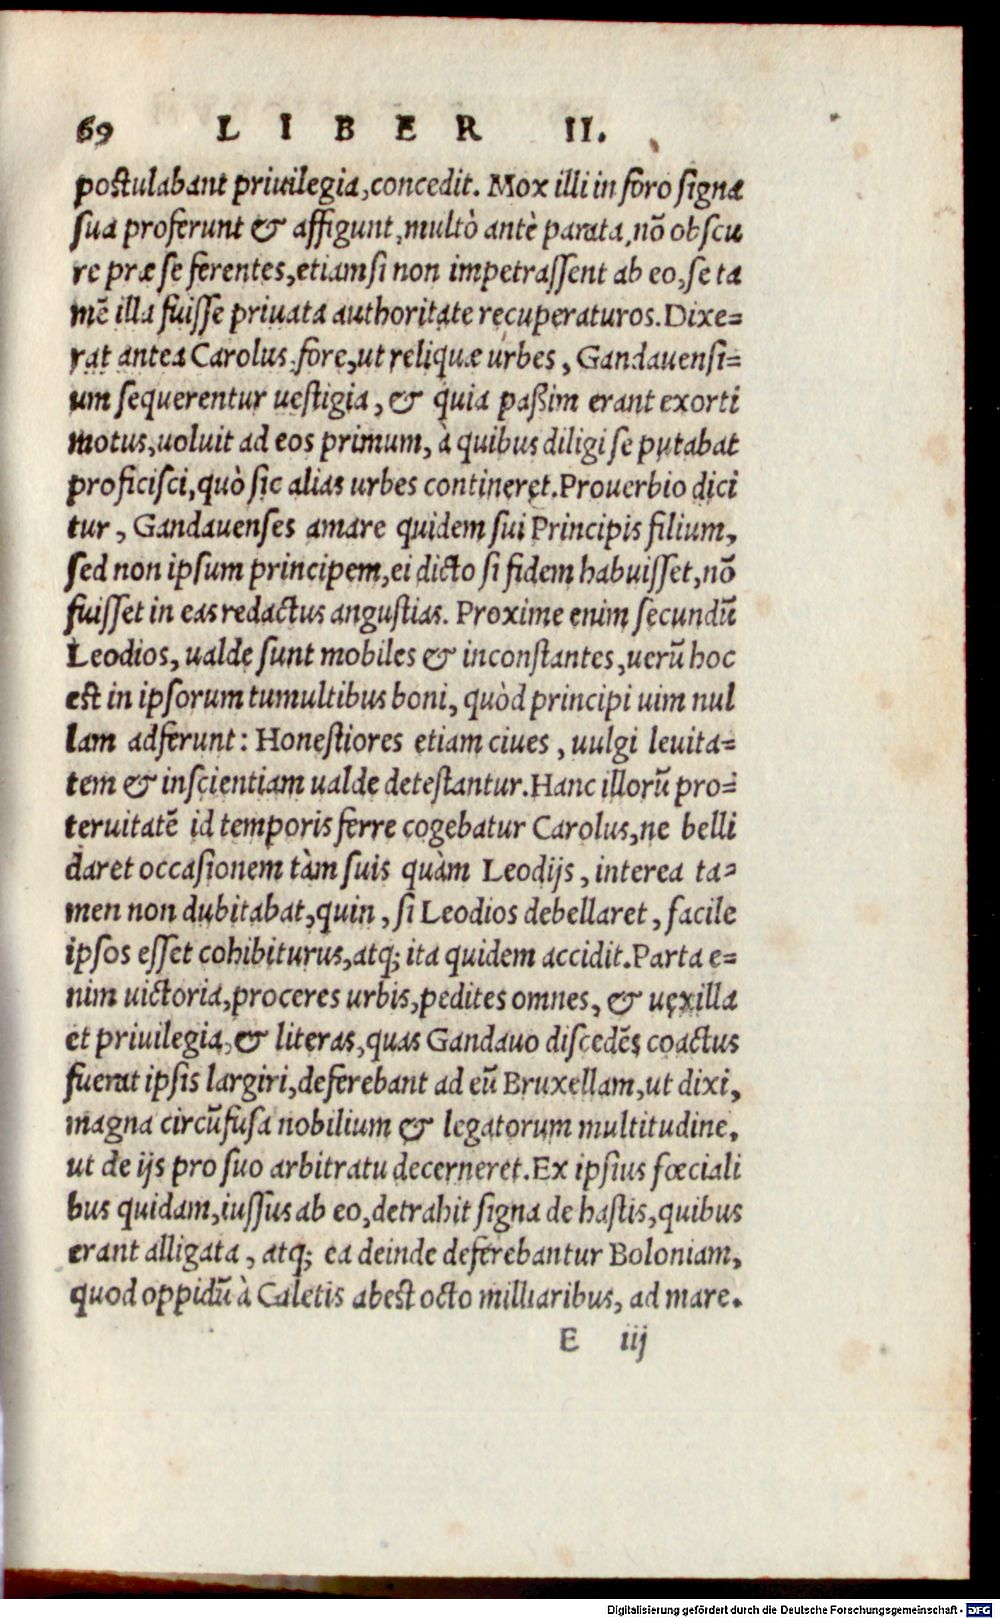 69 LIBER II.
postulabant priuilegia, concedit. Mox illi in foro signa
sua proferunt & affigunt, multò antè parata, nō obscu
re præ se ferentes, etiamsi non impetrassent ab eo, se ta
mē illa fuisse priuata authoritate recuperaturos. Dixe=
rat antea Carolus, fore, ut reliquæ urbes, Gandauensi=
um sequerentur uestigia, & quia paßim erant exorti
motus, uoluit ad eos primum, à quibus diligi se putabat
proficisci, quò sic alias urbes contineret. Prouerbio dici
tur, Gandauenses amare quidem sui Principis filium,
sed non ipsum principem, ei dicto si fidem habuisset, nō
fuisset in eas redactus angustias. Proxime enim secundū
Leodios, ualde sunt mobiles & inconstantes, uerū hoc
est in ipsorum tumultibus boni, quòd principi uim nul
lam adferunt: Honestiores etiam ciues, uulgi leuita=
tem & inscientiam ualde detestantur. Hanc illorū pro=
teruitatē id temporis ferre cogebatur Carolus, ne belli
daret occasionem tàm suis quàm Leodijs, interea ta=
men non dubitabat, quin, si Leodios debellaret, facile
ipsos esset cohibiturus, atq; ita quidem accidit. Parta e=
nim uictoria, proceres urbis, pedites omnes, & uexilla
et priuilegia, & literas, quas Gandauo discedēs coactus
fuerat ipsis largiri, deferebant ad eū Bruxellam, ut dixi,
magna circūfusa nobilium & legatorum multitudine,
ut de ijs pro suo arbitratu decerneret. Ex ipsius fœciali
bus quidam, iussus ab eo, detrahit signa de hastis, quibus
erant alligata, atq; ea deinde deferebantur Boloniam,
quod oppidū à Caletis abest octo milliaribus, ad mare.
E iij
Digitalisierung gefördert durch die Deutsche Forschungsgemeinschaft - DFG